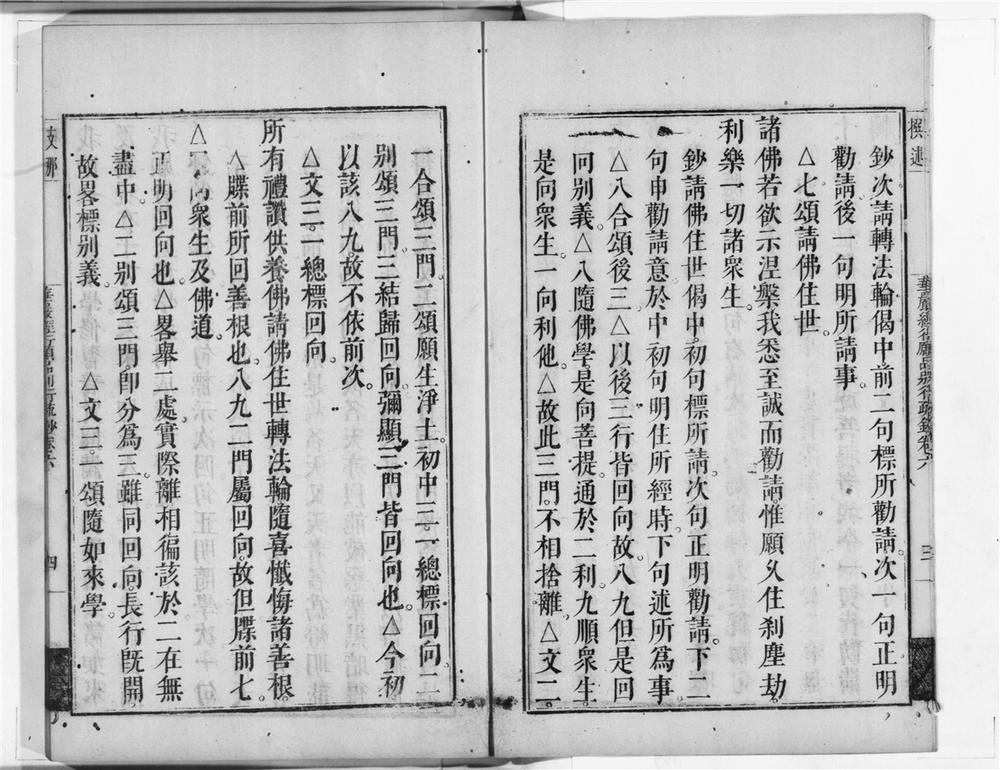 撰述
華嚴經行願品別行疏鈔卷六
三
鈔次請轉法輪偈中前二句標所勸請次一句正明
勸請後一句明所請事
△七頌請佛住世
諸佛若欲示涅槃我悉至誠而勸請惟願久住刹塵劫
利樂一切諸衆生
鈔請佛住世偈中初句標所請次句正明勸請下二
句申勸請意於中初句明住所經時下句述所爲事
△八合頌後三△以後三行皆回向故八九但是回
向别義△八隨佛學是向菩提通於二利九順衆生
是向衆生一向利他△故此三門不相捨離△文二
一合頌三門二頌願生淨土初中三一總標回向二
别頌三門三結歸回向彌顯三門皆回向也△今初
以該八九故不依前次
△文三一總標回向
所有禮讚供養佛請佛住世轉法輪隨喜懺悔諸善根
△牒前所回善根也八九二門屬回向故但牒前七
△回向衆生及佛道
正明回向也△畧舉二處實際離相徧該於二在無
盡中△二别頌三門即分爲三雖同回向長行旣開
故畧標别義△文三一頌隨如來學
支那
華嚴經行願品別行疏鈔卷六
四